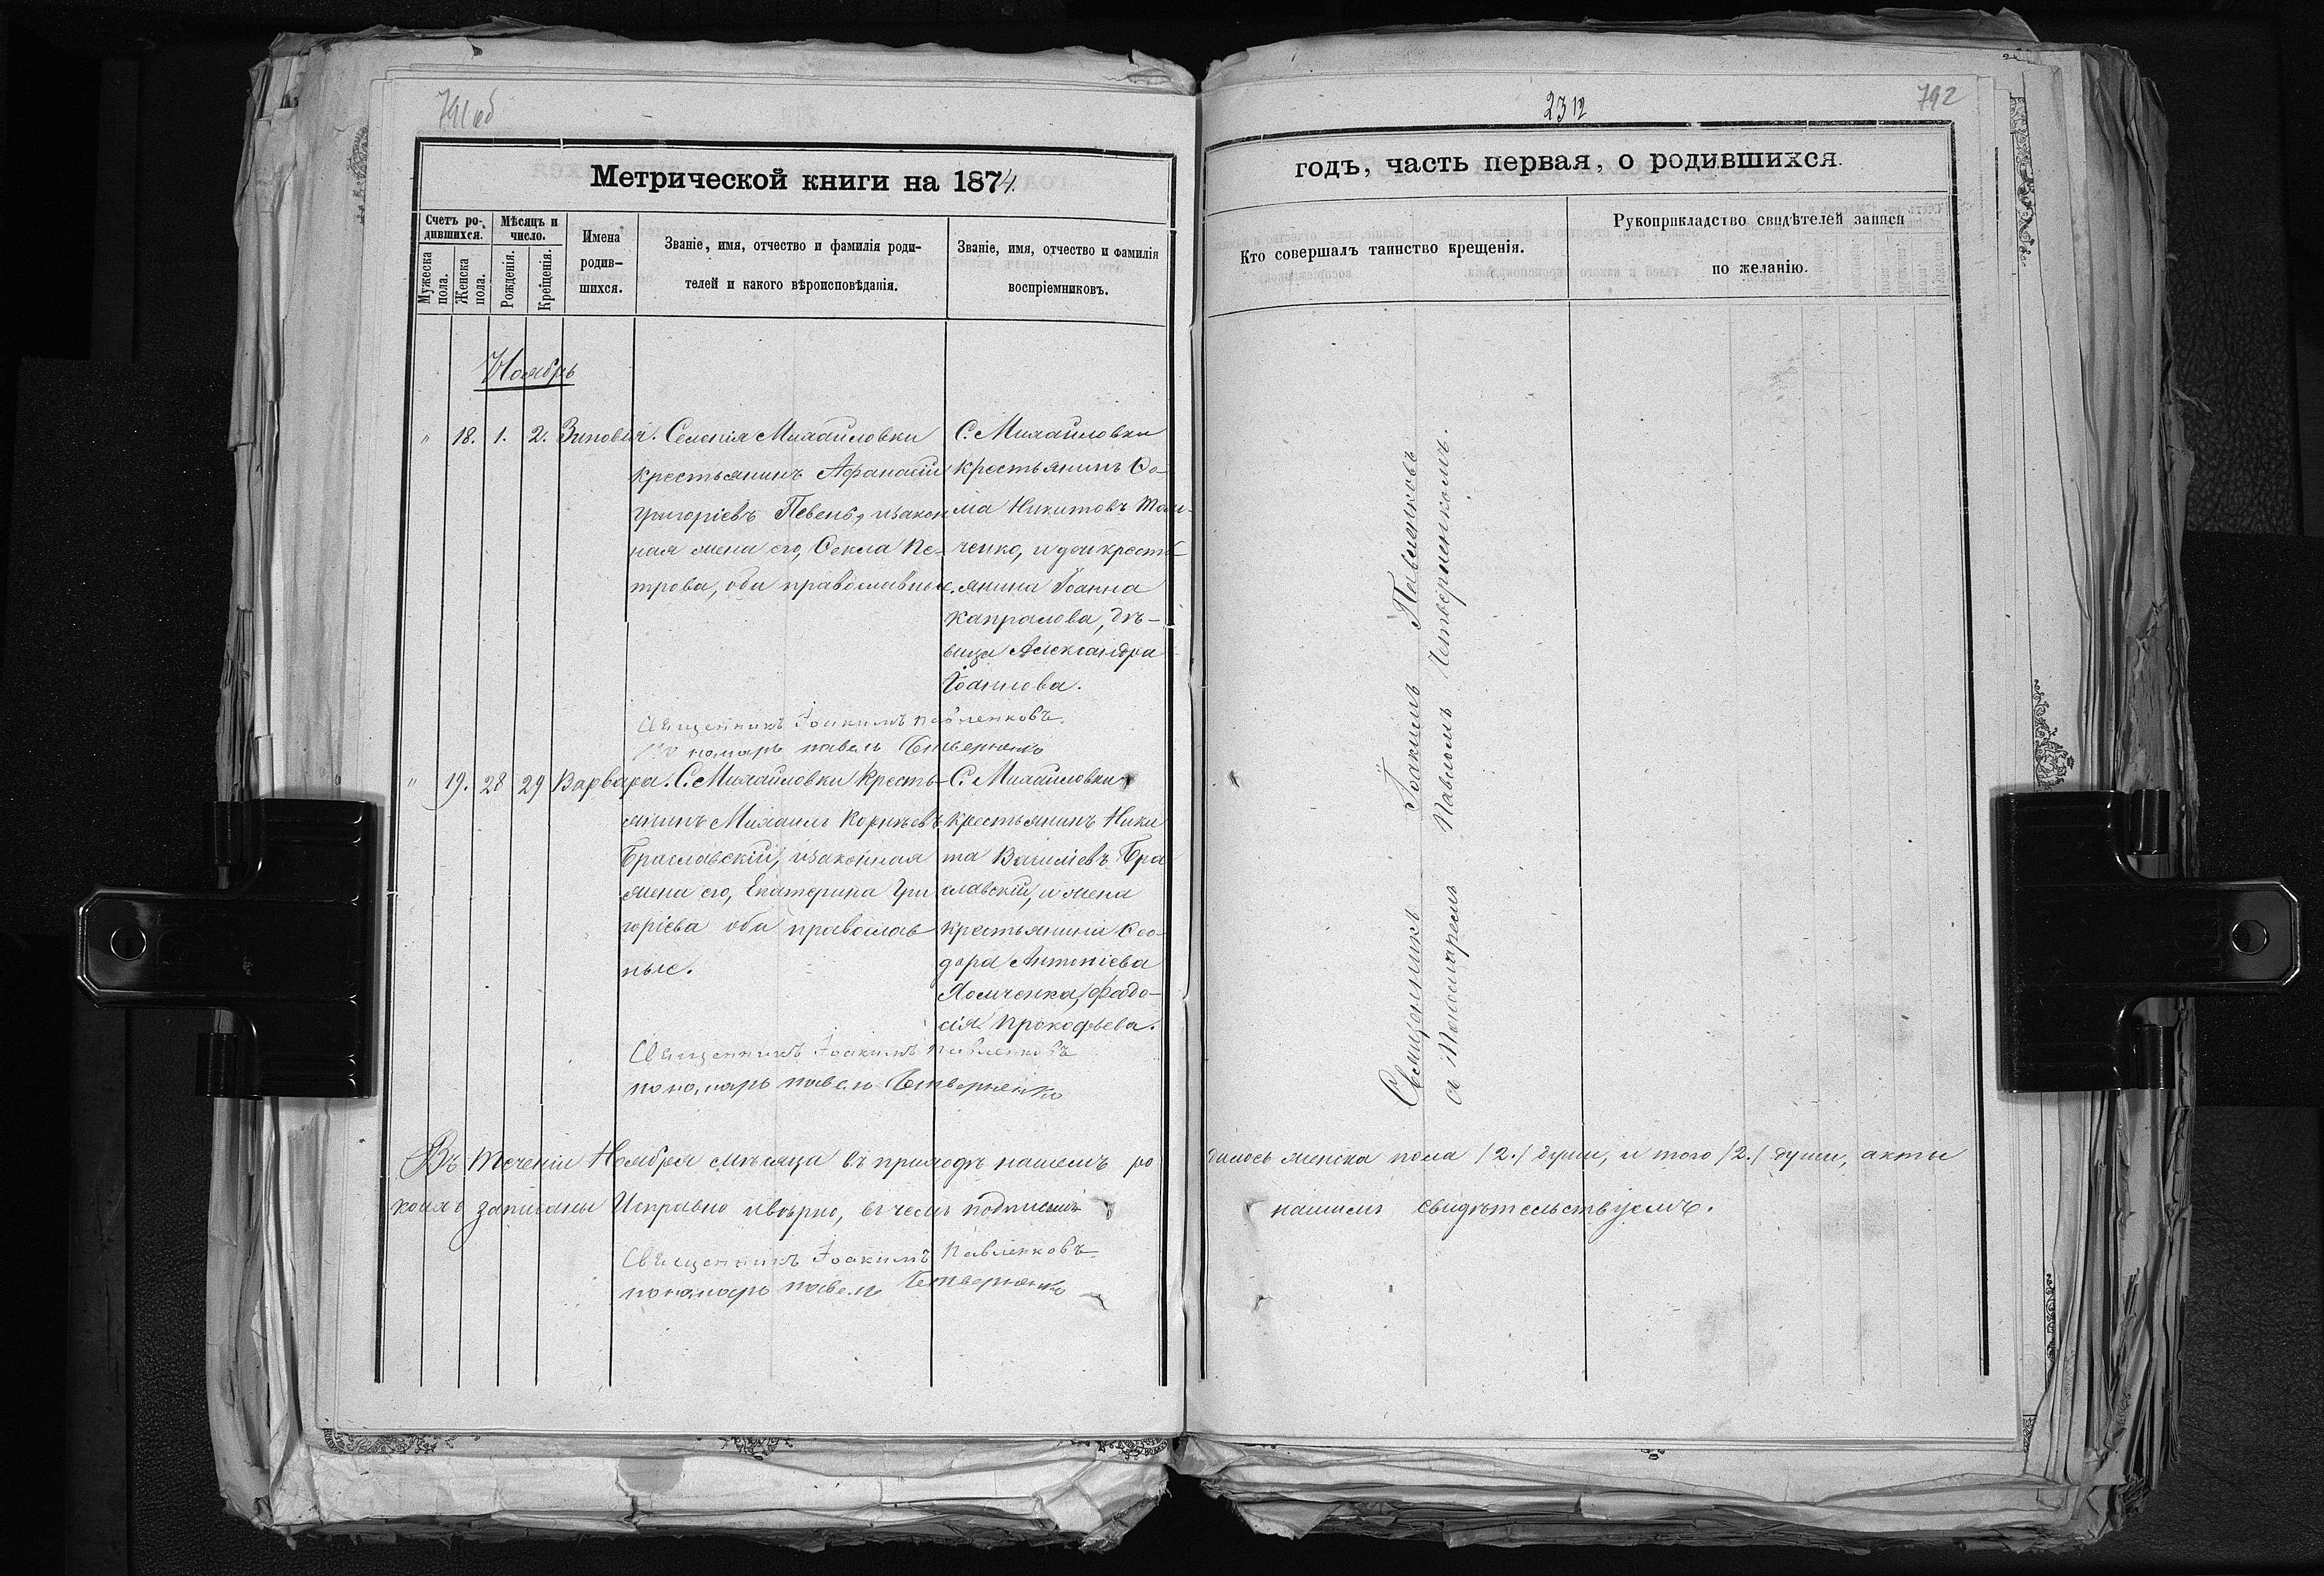 791 об
Метрической книги на 1874.
Счетъ ро-
дившихся.
Мужеска
пола.
Женска
пола.
Мѣсяцъ и
число.
Рожденія.
Крещенія.
Имена
родив-
шихся.
Званіе, имя, отчество и фамилія роди-
телей и какого вѣроисповѣданія.
Званіе, имя, отчество и фамилія
воспріемниковъ.
Ноябрь
" 18. 1. 2. Зиновія.
Селенія Михайловки
крестьянинъ Афанасій
Григоріевъ Певень, изакон
ная жена его, Ѳекла Пе-
трова, оба православные.
С. Михайловки
крестьянинъ Ѳо-
ма Никитовъ
ченко, и дочь кресть-
янина Іоанна
Капралова, дѣ-
вица Александра
Іоаннова.
Священникъ Іоакимъ Павленковъ.
Пономарь павелъ Четверненко
" 19. 28 29 Варвара.
С. Михайловки кресть-
янинъ Михаилъ Корнѣевъ
Браславскій, изаконная
жена его, Екатерина Гри
горіева оба православ
ные.
С. Михайловки
крестьянинъ Ники
та Василіевъ Бра
славскій, и жена
крестьянина Ѳео-
дора Антоніева
Хомченка, Федо-
сія Прокофьева.
Священникъ Іоакимъ Павленковъ
пономарь павелъ Четверненко
Въ теченіи Ноября мѣсяца въ приходѣ нашемъ ро
коихъ записаны Исправно ивѣрно, въ чемъ подписомъ
Священникъ Іоакимъ Павленковъ
пономарь павелъ Четверненко
2312
792
годъ, часть первая, о родившихся.
Кто совершалъ таинство крещенія.
Рукоприкладство свидѣтелей записи
по желанію.
Священникъ Іоакимъ Павленковъ
съ Пономаремъ Павломъ Четверненкомъ.
дилось женска пола /2./ души, и того /2./ души, акты
нашимъ свидѣтельствуемъ.